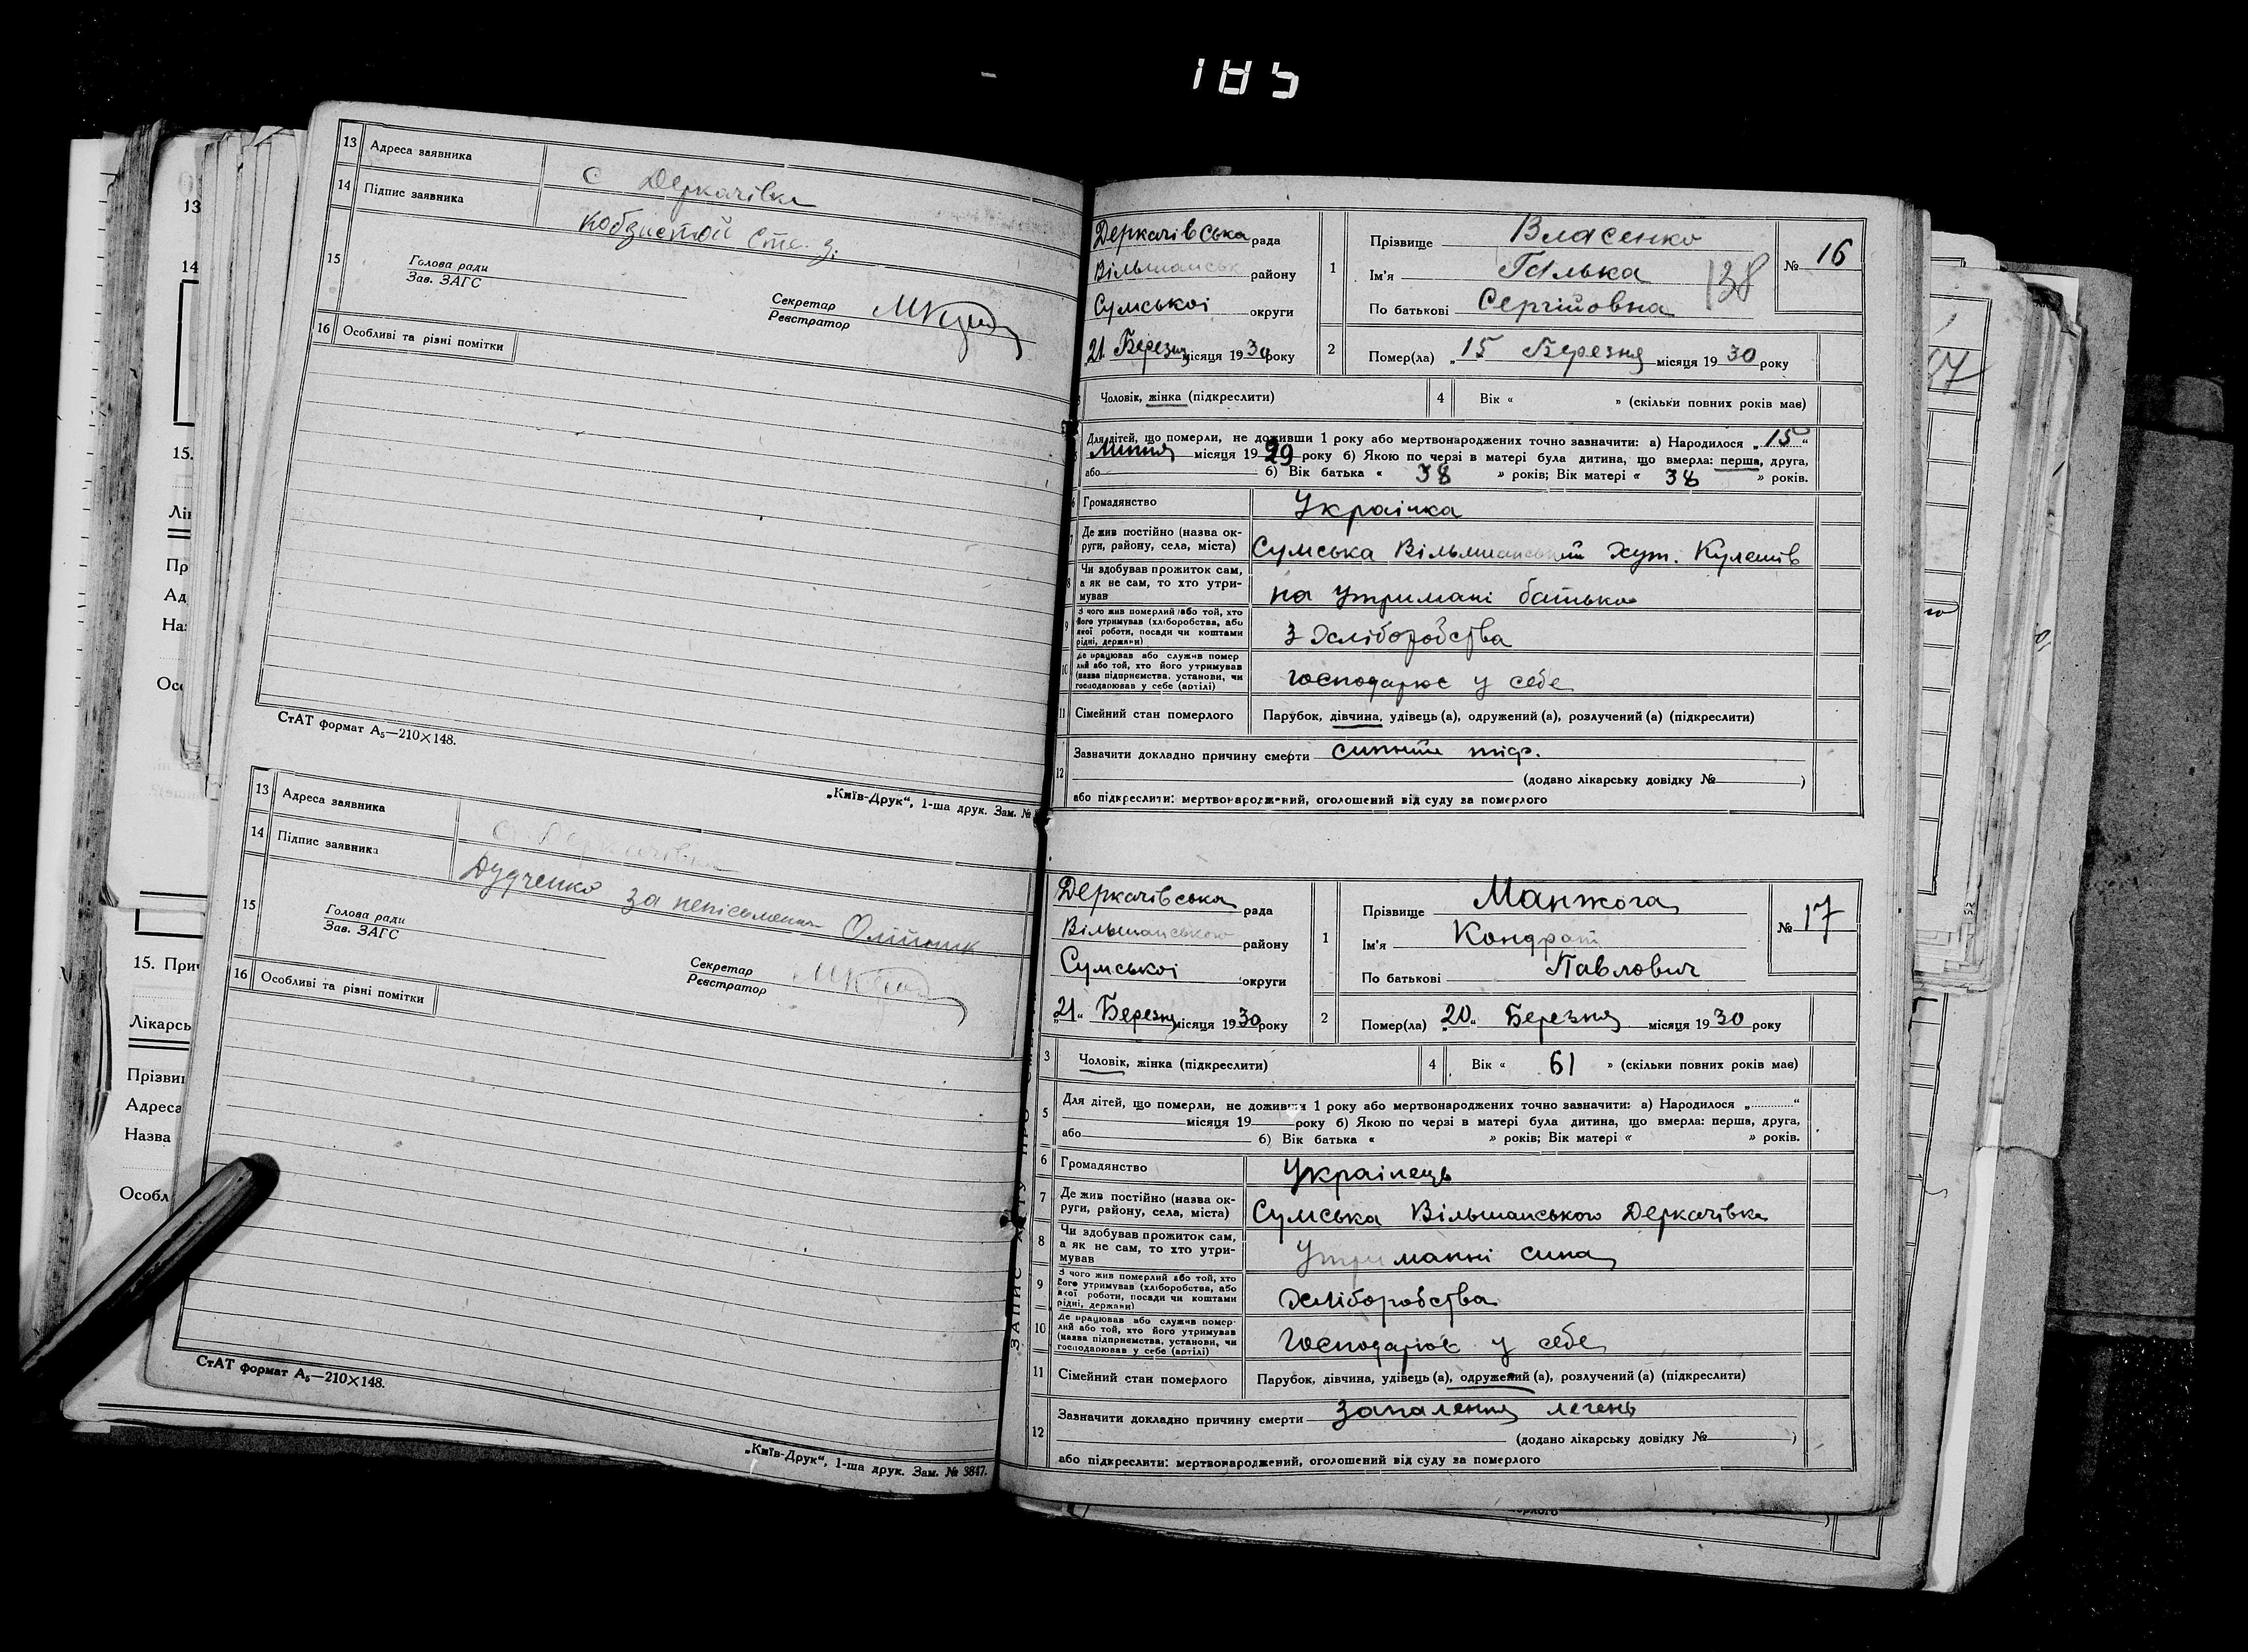 185
13 Адреса заявника с Деркачівка
14 Підпис заявника Кобзистой
15 Голова ради
Зав. ЗАГС
Секретар
Реєстратор
16 Особливі та різні помітки
СтАТ формат А5—210×148.
„Київ-Друк“, 1-ша друк. Зам. №
13 Адреса заявника с Деркачівка
14 Підпис заявника Дудченко за неписьменн Олійник
15 Голова ради
Зав. ЗАГС
Секретар
Реєстратор
16 Особливі та різні помітки
СтАТ формат А5—210×148.
„Київ-Друк“, 1-ша друк. Зам. № 3847.
Деркачівська рада
Вільшанськ району
Сумськоі округи
21 Березня місяця 1930 року
1 Прізвище Власенко
Ім'я Галька
По батькові Сергійовна
138
№ 16
2 Помер(ла) „15 Березня місяця 1930 року
Чоловік, жінка (підкреслити)
4 Вік « » (скільки повних років має)
Для дітей, що померли, не доживши 1 року або мертвонароджених точно зазначити: а) Народилося „15“
Липня місяця 1929 року б) Якою по черзі в матері була дитина, що вмерла: перша, друга,
або б) Вік батька « 38 » років; Вік матері « 38 » років.
6 Громадянство Украінка
7 Де жив постійно (назва ок-
руги, району, села, міста) Сумська Вільшанський Хут. Кулешів
8 Чи здобував прожиток сам,
а як не сам, то хто утри-
мував на утримані батька
9 З чого жив померлий або той, хто
його утримував (хліборобства, або
якої роботи, посади чи коштами
рідні, держави) З Хліборобства
10 Де працював або служив помер
лий або той, хто його утримував
(назва підприємства, установи, чи
господарював у себе (артілі) господарює у себе
11 Сімейний стан померлого Парубок, дівчина, удівець (а), одружений (а), розлучений (а) (підкреслити)
12 Зазначити докладно причину смерти сипний тіф.
(додано лікарську довідку № )
або підкреслити: мертвонароджений, оголошений від суду за померлого
ЗАПИС АКТУ ПРО
Деркачівська рада
Вільшанського району
Сумськоі округи
„21“ Березня місяця 1930 року
1 Прізвище Манжога
Ім'я Кондрат
По батькові Павлович
№ 17
2 Помер(ла) „20“ Березня місяця 1930 року
3 Чоловік, жінка (підкреслити)
4 Вік « 61 » (скільки повних років має)
5 Для дітей, що померли, не доживши 1 року або мертвонароджених точно зазначити: а) Народилося „ “
місяця 19 року б) Якою по черзі в матері була дитина, що вмерла: перша, друга,
або б) Вік батька « » років; Вік матері « » років.
6 Громадянство Украінець
7 Де жив постійно (назва ок-
руги, району, села, міста) Сумська Вільшанського Деркачівка
8 Чи здобував прожиток сам,
а як не сам, то хто утри-
мував Утриманні сина
9 З чого жив померлий або той, хто
його утримував (хліборобства, або
якої роботи, посади чи коштами
рідні, держави) Хліборобства
10 Де працював або служив помер-
лий або той, хто його утримував
(назва підприємства, установи, чи
господарював у себе (артілі) Господарює у себе
11 Сімейний стан померлого Парубок, дівчина, удівець (а), одружений (а), розлучений (а) (підкреслити)
12 Зазначити докладно причину смерти запалення легень
(додано лікарську довідку № )
або підкреслити: мертвонароджений, оголошений від суду за померлого